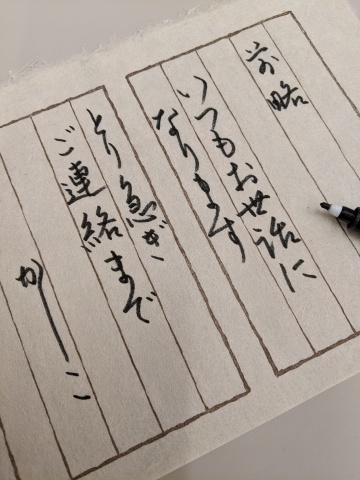 前略
いつもお世話に
なります
とり急ぎ
ご連絡まで
かしこ